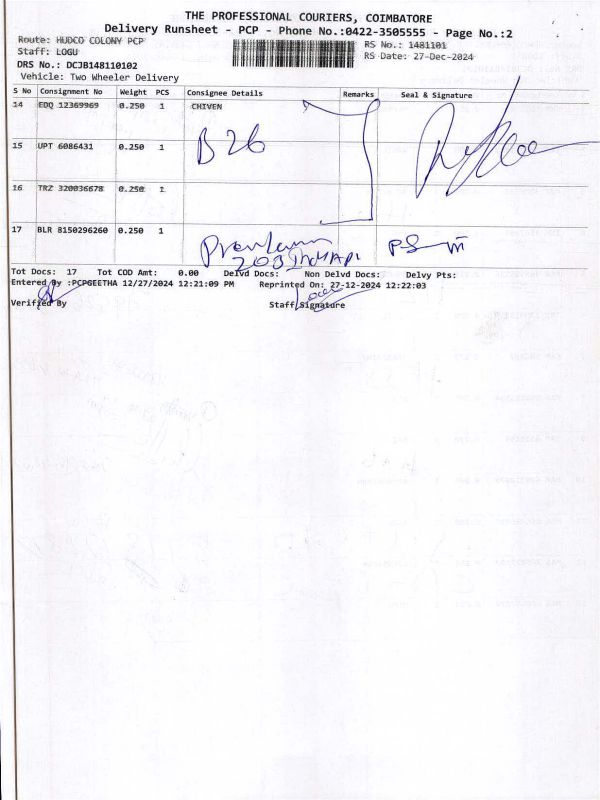 THE PROFESSIONAL COURIERS, COIMBATORE
Delivery Runsheet - PCP - Phone No.:0422-3505555 - Page No.:2
Route: HUDCO COLONY PCP RS No.: 1481101
Staff: LOGU RS Date: 27-Dec-2024
DRS No.: DCJB148110102
Vehicle: Two Wheeler Delivery
S No Consignment No Weight PCS Consignee Details Remarks Seal & Signature
14 EDQ 12369969 0.250 1 CHIVEN
15 UPT 6086431 0.250 1 B 26
16 TRZ 320036678 0.250 1
17 BLR 8150296260 0.250 1
Tot Docs: 17 Tot COD Amt: 0.00 Delvd Docs: Non Delvd Docs: Delvy Pts:
Entered By :PCPGEETHA 12/27/2024 12:21:09 PM Reprinted On: 27-12-2024 12:22:03
Verified By Staff Signature